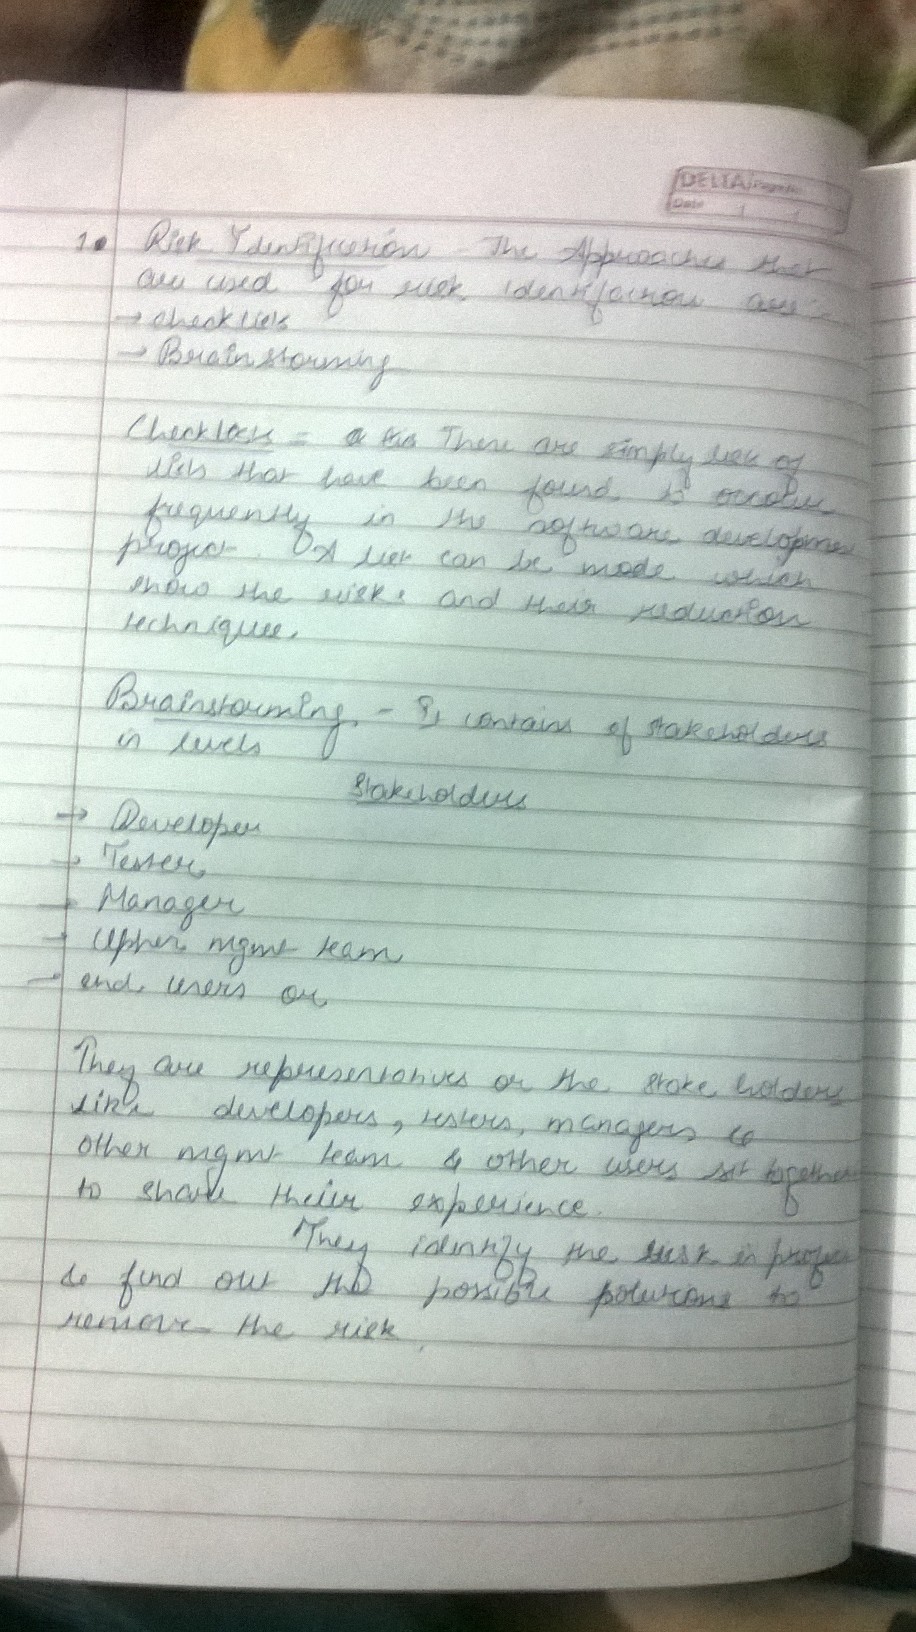 DELTA
Date
1. Risk Identification - The Approaches that
are used for risk identification are:
→ checklists
→ Brainstorming
Checklists = There are simply list of
that have been found to occour
frequently in the software developmen
project. A list can be made which
show the risks and their reduction
techniques.
Brainstorming - It contains of stakeholders
in levels
Stakeholders
→ Developer
→ Tester
→ Manager
→ Upher mgmt team
→ end users or
They are representatives or the stake holders
like developers, testers, managers &
other mgmt team & other users sit together
to share their experience.
They identify the risk in projec
& find out the possible solutions to
remove the risk.